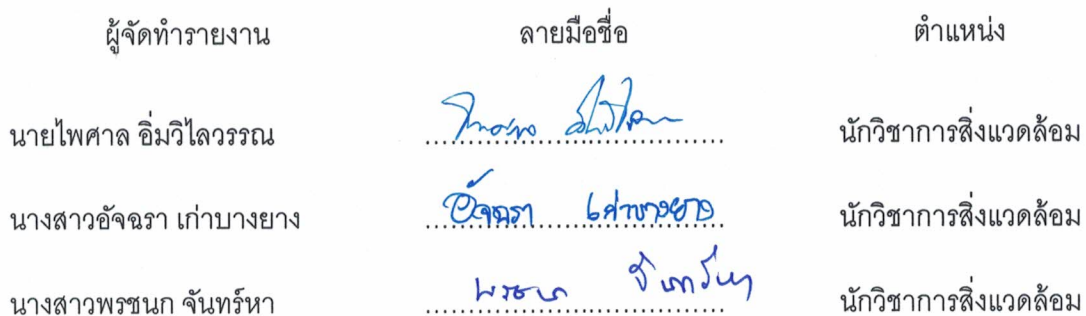 ผู้จัดทำรายงาน ลายมือชื่อ ตำแหน่ง
นายไพศาล อิ่มวิไลวรรณ นักวิชาการสิ่งแวดล้อม
นางสาวอัจฉรา เก่าบางยาง อัจฉรา เก่าบางยาง นักวิชาการสิ่งแวดล้อม
นางสาวพรชนก จันทร์หา นักวิชาการสิ่งแวดล้อม